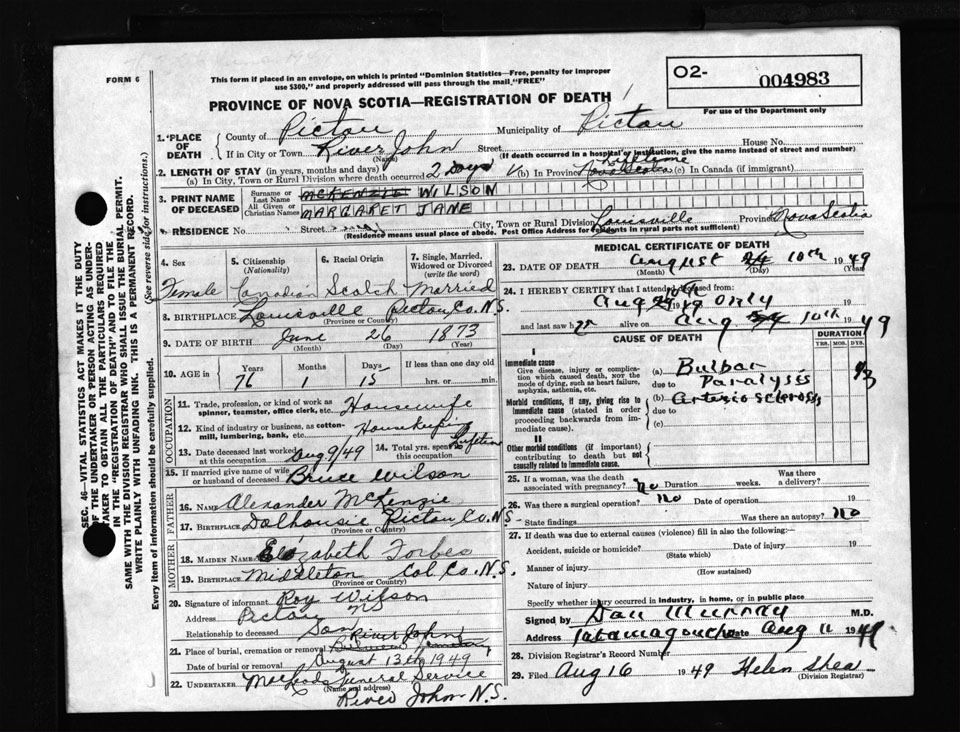 FORM 6
This form if placed in an envelope, on which is printed "Dominion Statistics—Free, penalty for improper
use $300," and properly addressed will pass through the mail "FREE"
O2- 004983
For use of the Department only
PROVINCE OF NOVA SCOTIA—REGISTRATION OF DEATH
1. PLACE OF DEATH
County of Pictou Municipality of Pictou
If in City or Town River John Street House No.
(Name) (If death occurred in a hospital or institution, give the name instead of street and number)
2. LENGTH OF STAY (in years, months and days)
(a) In City, Town or Rural Division where death occurred 2 Days (b) In Province Nova Scotia Lifetime (c) In Canada (if immigrant)
3. PRINT NAME OF DECEASED
Surname or Last Name MCKENZIE WILSON
All Given or Christian Names MARGARET JANE
RESIDENCE No. Street City, Town or Rural Division Louisville Province Nova Scotia
(Residence means usual place of abode. Post Office Address for residents in rural parts not sufficient)
4. Sex Female
5. Citizenship (Nationality) Canadian
6. Racial Origin Scotch
7. Single, Married, Widowed or Divorced (write the word) Married
8. BIRTHPLACE Louisville Pictou Co. N.S.
(Province or Country)
9. DATE OF BIRTH June 26 1873
(Month) (Day) (Year)
10. AGE in Years 76 Months 1 Days 15 If less than one day hrs. or min.
OCCUPATION
11. Trade, profession, or kind of work as spinner, teamster, office clerk, etc. Housewife
12. Kind of industry or business, as cotton-mill, lumbering, bank, etc. Housekeeping
13. Date deceased last worked at this occupation Aug 9/49
14. Total yrs. spent in this occupation Lifetime
15. If married give name of wife or husband of deceased Bruce Wilson
FATHER
16. Name Alexander McKenzie
17. Birthplace Dalhousie Pictou Co. N.S.
(Province or Country)
MOTHER
18. Maiden Name Elizabeth Forbes
19. Birthplace Middleton Col. Co. N.S.
(Province or Country)
20. Signature of informant Roy Wilson
Address Pictou
Relationship to deceased Son
21. Place of burial, cremation or removal River John Cemetery
Date of burial or removal August 13th 1949
22. Undertaker MacLeods Funeral Service
(Name and address)
River John N.S.
MEDICAL CERTIFICATE OF DEATH
23. DATE OF DEATH August 10th 1949
(Month) (Day) (Year)
24. I HEREBY CERTIFY that I attended deceased from:
Aug 10th 19 only 19
and last saw her alive on Aug 10th 1949
CAUSE OF DEATH
DURATION
YRS. MOS. DYS.
I
Immediate cause
Give disease, injury or complication which caused death, NOT the mode of dying, such as heart failure, asphyxia, asthenia, etc.
(a) Bulbar
due to Paralysis
Morbid conditions, if any, giving rise to immediate cause (stated in order proceeding backwards from immediate cause).
(b) Arterio sclerosis
due to
(c)
II
Other morbid conditions (if important) contributing to death but not causally related to immediate cause.
25. If a woman, was the death associated with pregnancy? no Duration weeks. Was there a delivery?
26. Was there a surgical operation? no Date of operation 19
State findings Was there an autopsy? no
27. If death was due to external causes (violence) fill in also the following:—
Accident, suicide or homicide? Date of injury 19
(State which)
Manner of injury
(How sustained)
Nature of injury
Specify whether injury occurred in industry, in home, or in public place
Signed by Dan Murray M.D.
Address Tatamagouche Date Aug 11 1949
28. Division Registrar's Record Number
29. Filed Aug 16 1949 Helen Shea
(Division Registrar)
SEC. 46—VITAL STATISTICS ACT MAKES IT THE DUTY
OF THE UNDERTAKER OR PERSON ACTING AS UNDER-
TAKER TO OBTAIN ALL THE PARTICULARS REQUIRED
IN THE "REGISTRATION OF DEATH" AND TO FILE THE
SAME WITH THE DIVISION REGISTRAR WHO SHALL ISSUE THE BURIAL PERMIT.
WRITE PLAINLY WITH UNFADING INK. THIS IS A PERMANENT RECORD.
Every item of information should be carefully supplied. (See reverse side for instructions.)